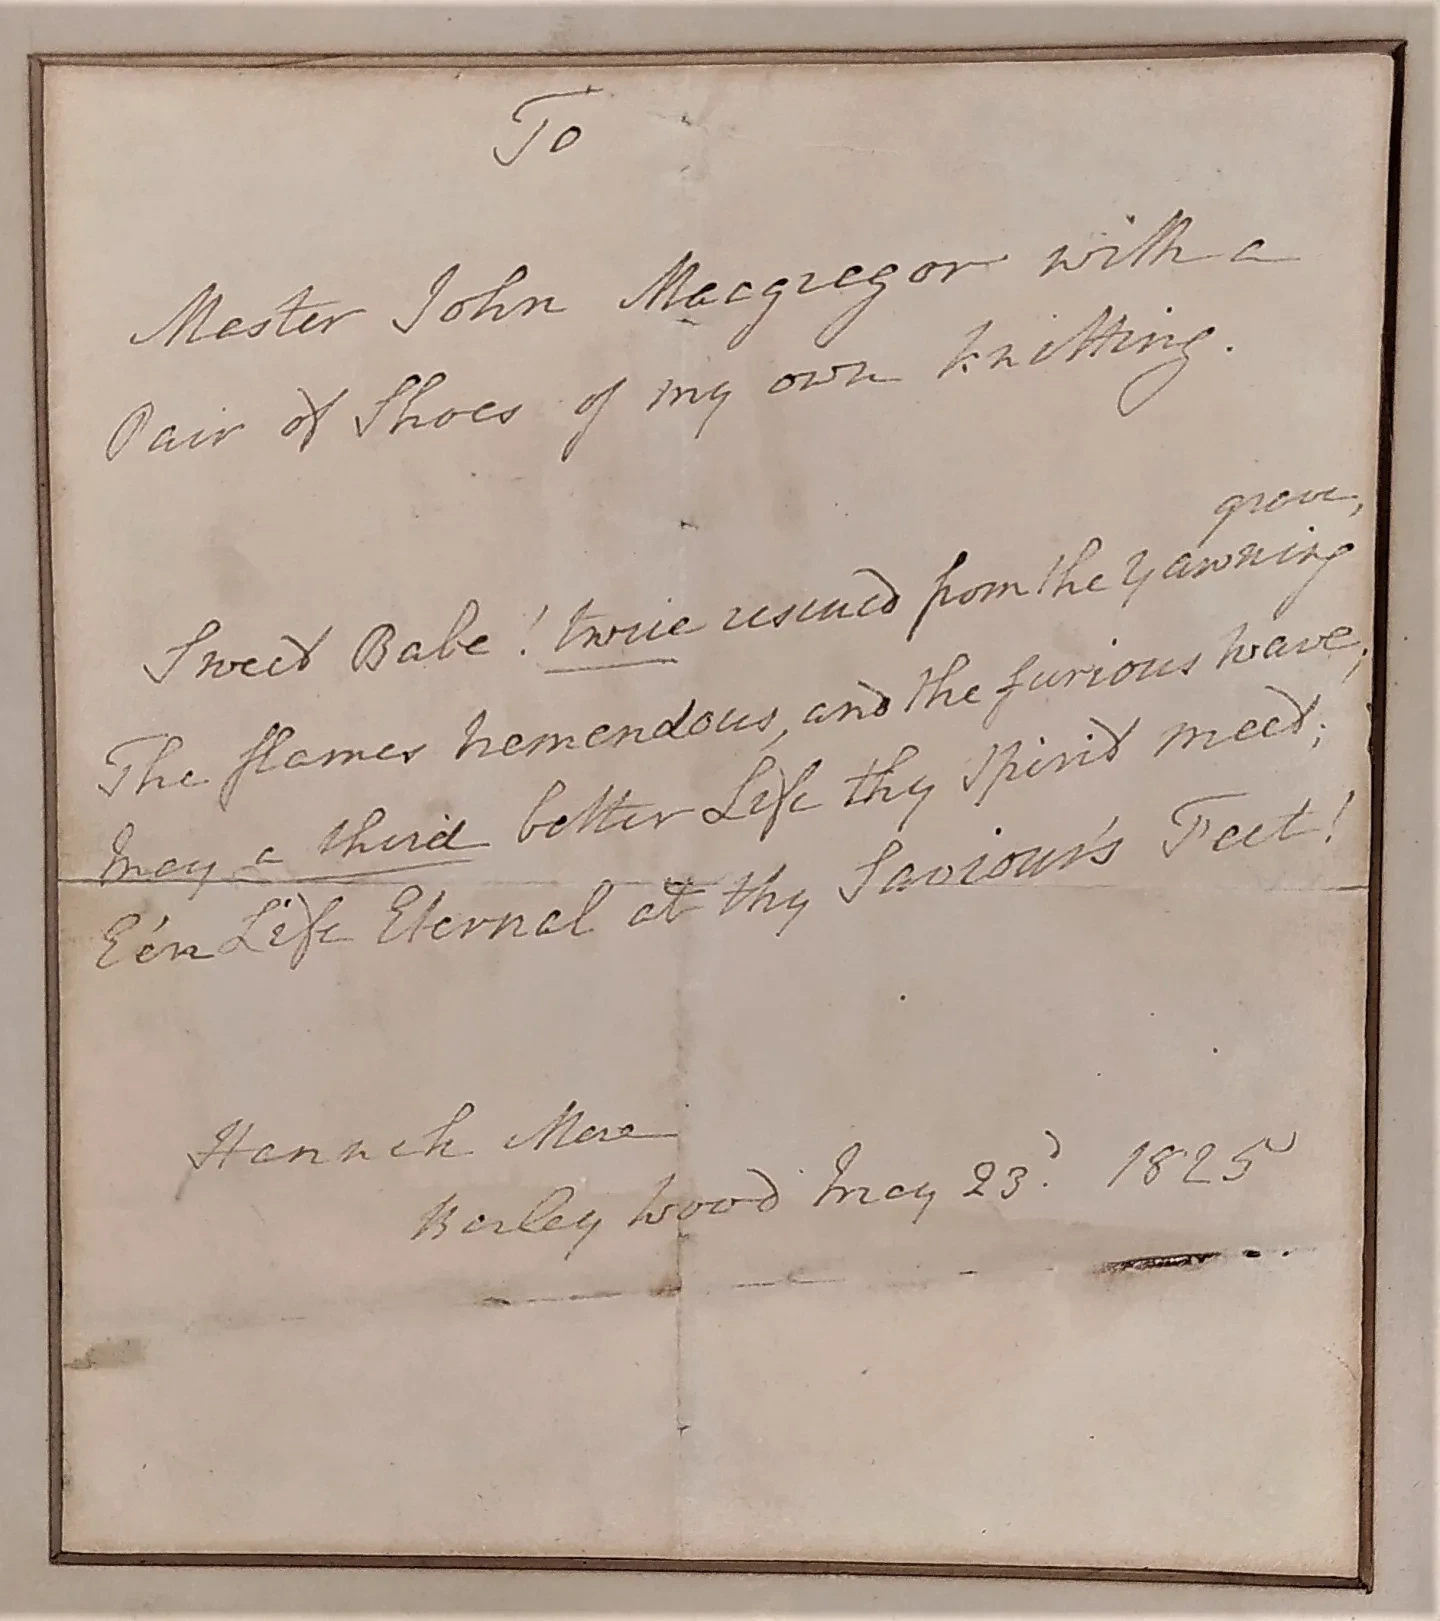 To
Master John Macgregor with a
Pair of Shoes of my own knitting.
grave,
Sweet Babe! twice rescued from the yawning
The flames tremendous, and the furious wave;
May a third better Life thy Spirit meet;
E'en Life Eternal at thy Saviour's Feet!
Hannah More
Barley Wood May 23d. 1825